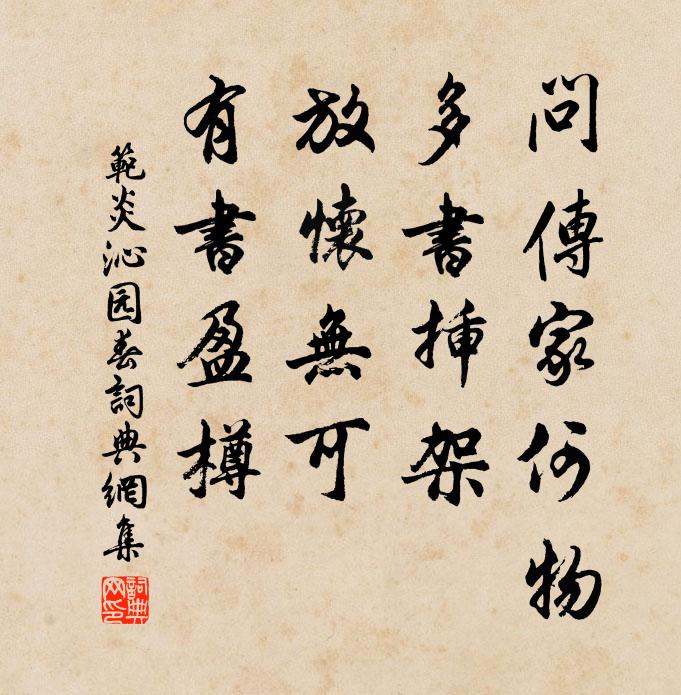 問傳家何物
多書挿架
放懷無可
有書盈樽
範炎沁园春詞典網集
詞典网印